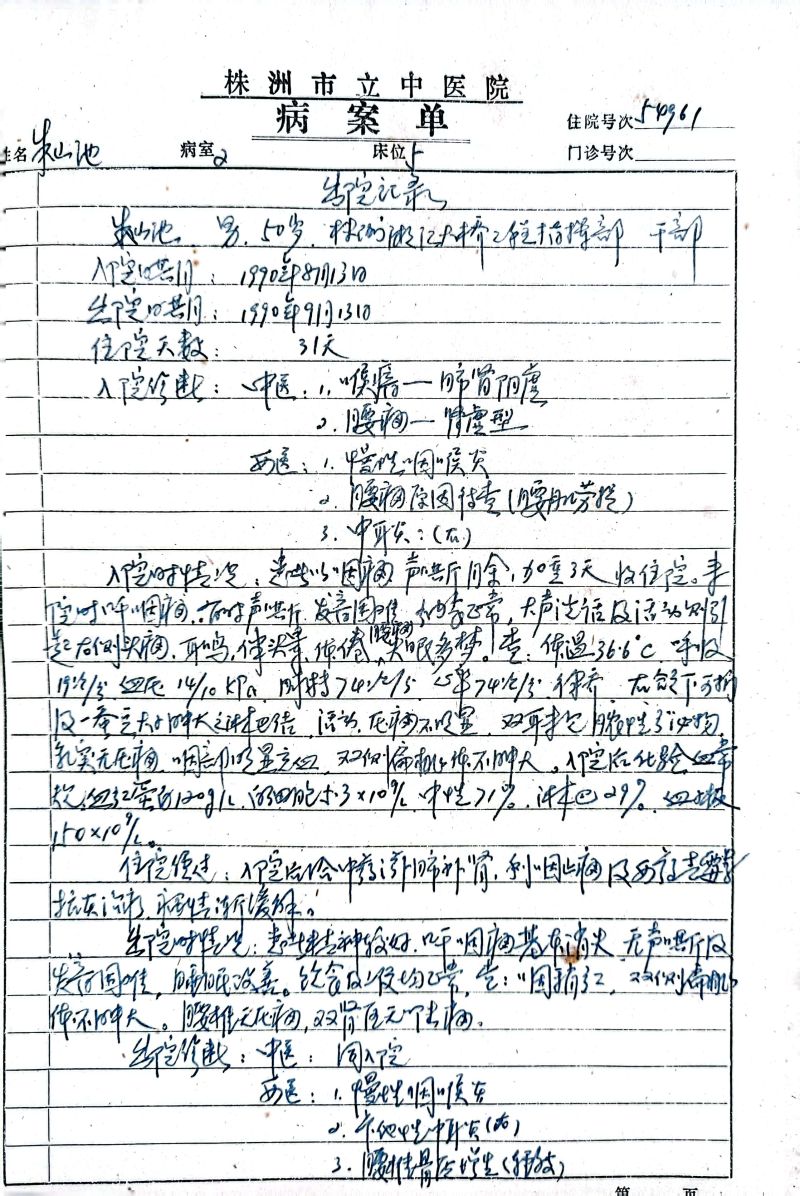 株洲市立中医院
病案单
住院号次 54961
姓名 朱山池 病室 2 床位 5 门诊号次
出院记录
朱山池 男 50岁 株洲湘江大桥工程指挥部 干部
入院日期：1990年8月13日
出院日期：1990年9月13日
住院天数：31天
入院诊断：中医：1.喉瘖—肺肾阴虚
2.腰痛—肾虚型
西医：1.慢性咽喉炎
2.腰痛原因待查(腰肌劳损)
3.中耳炎：(右)
入院时情况：患者以咽痛声嘶月余，加重3天收住院。来
院时呼咽痛，有时声嘶发音困难，正常，大声说话及活动则引
起右侧头痛，耳鸣，伴头晕，体倦腰痛失眠多梦。查：体温36.6°C 呼吸
19次/分 血压14/10 KPa 脉搏74次/分 心率74次/分律齐 右颌下可扪
及一蚕豆大小肿大之淋巴结 活动，压痛不明显，双耳未见脓性分泌物
乳突无压痛，咽部明显充血，双侧扁桃体不肿大。入院后化验血常
规血红蛋白120g/L 白细胞5.3×10⁹/L 中性71% 淋巴29% 血小板
150×10⁹/L。
住院经过：入院后给中药滋肺补肾，利咽止痛及西药青霉素
抗炎治疗，病情渐缓解。
出院时情况：患者精神较好，呼咽痛基本消失，无声嘶及
发音困难，睡眠改善。饮食及二便均正常，查：咽稍红，双侧扁桃
体不肿大。腰椎无压痛，双肾区无叩击痛。
出院诊断：中医：同入院
西医：1.慢性咽喉炎
2.卡他性中耳炎(右)
3.腰椎骨质增生(轻微)
第 页